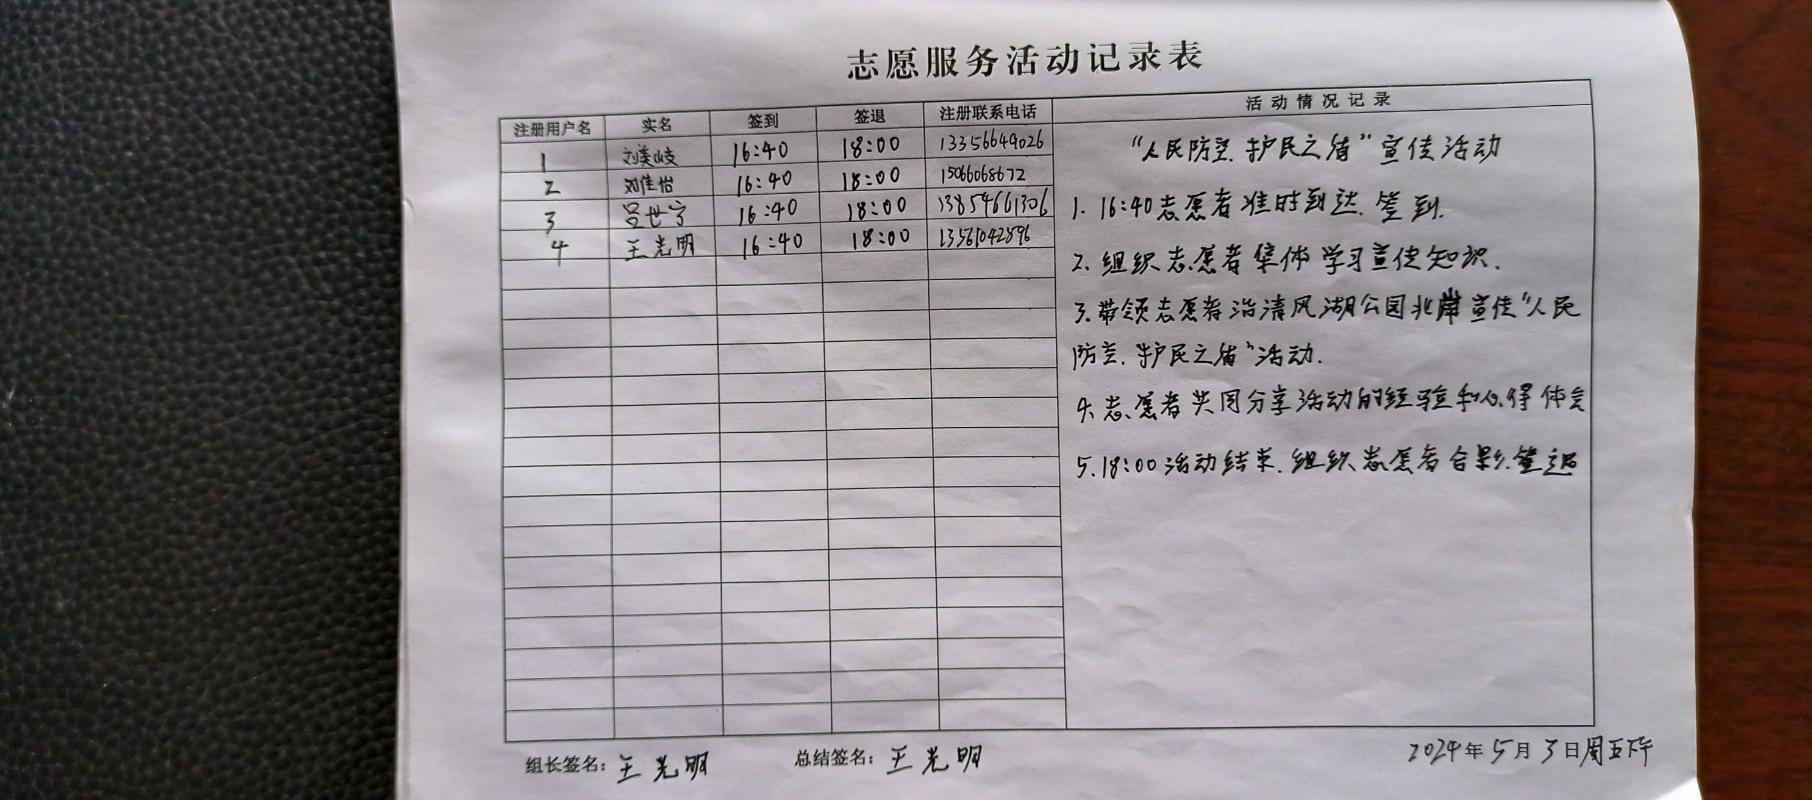 志愿服务活动记录表
注册用户名 实名 签到 签退 注册联系电话 活动情况记录
1 刘美岐 16:40 18:00 13356649026
2 刘佳怡 16:40 18:00 15066068672
3 吕世宁 16:40 18:00 13854661306
4 王光明 16:40 18:00 13561042896
“人民防空.护民之盾”宣传活动
1. 16:40志愿者准时到达.签到.
2. 组织志愿者集体学习宣传知识.
3.带领志愿者沿清风湖公园北岸宣传“人民
防空.护民之盾”活动.
4.志愿者共同分享活动的经验和心得体会
5.18:00活动结束.组织志愿者合影.签退
组长签名：王光明 总结签名：王光明 2024年5月3日周五下午